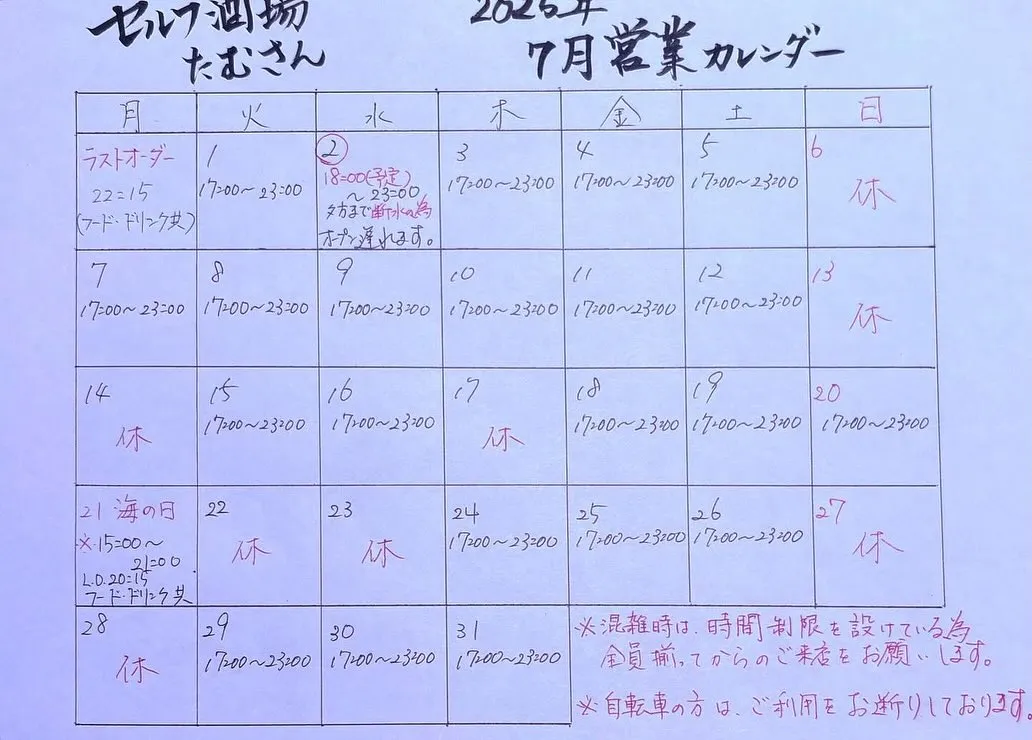 セルフ酒場
たむさん
2025年
7月営業カレンダー
月 火 水 木 金 土 日
ラストオーダー
22=15
(フード・ドリンク共)
1
17=00〜23=00
2
18=00(予定)
〜23=00
夕方まで断水の為
オープン遅れます。
3
17=00〜23=00
4
17=00〜23=00
5
17=00〜23=00
6
休
7
17=00〜23=00
8
17=00〜23=00
9
17=00〜23=00
10
17=00〜23=00
11
17=00〜23=00
12
17=00〜23=00
13
休
14
休
15
17=00〜23=00
16
17=00〜23=00
17
休
18
17=00〜23=00
19
17=00〜23=00
20
17=00〜23=00
21 海の日
※15=00〜
21=00
L.O.20=15
フード・ドリンク共
22
休
23
休
24
17=00〜23=00
25
17=00〜23=00
26
17=00〜23=00
27
休
28
休
29
17=00〜23=00
30
17=00〜23=00
31
17=00〜23=00
※混雑時は、時間制限を設けている為
全員揃ってからのご来店をお願いします。
※自転車の方は、ご利用をお断りしております。